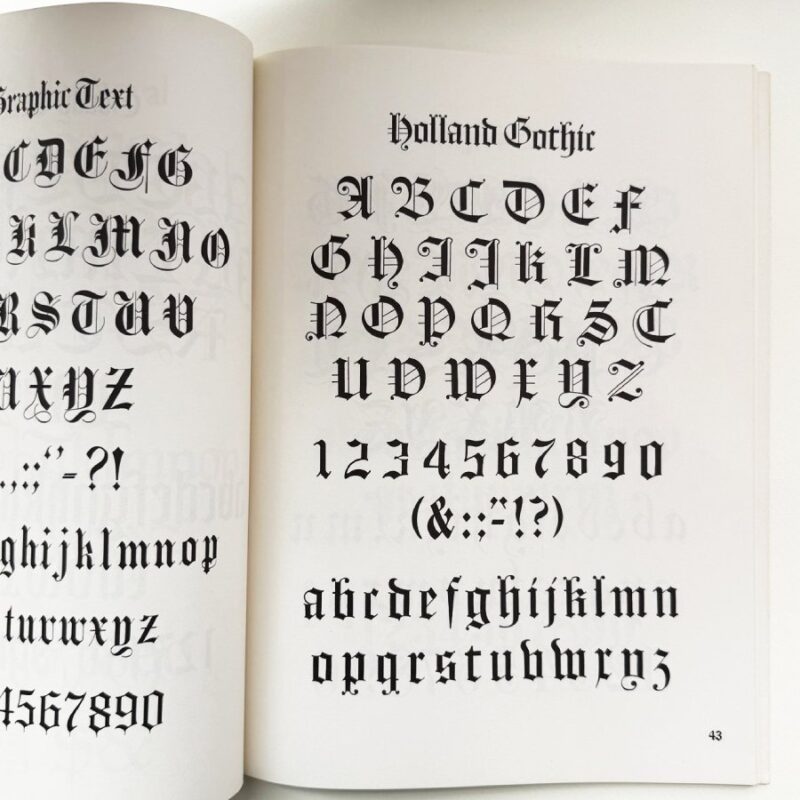 Graphic Text
CDEFG
KLMNO
RSTUV
XYZ
.,:;‘’-?!
ghijklmnop
tuvwxyz
4567890
Holland Gothic
A B C D E F
G H I J K L M
N O P Q R S T
U V W X Y Z
1 2 3 4 5 6 7 8 9 0
(&:;"-!?)
abcdefghijklmn
opqrstuvwxyz
43